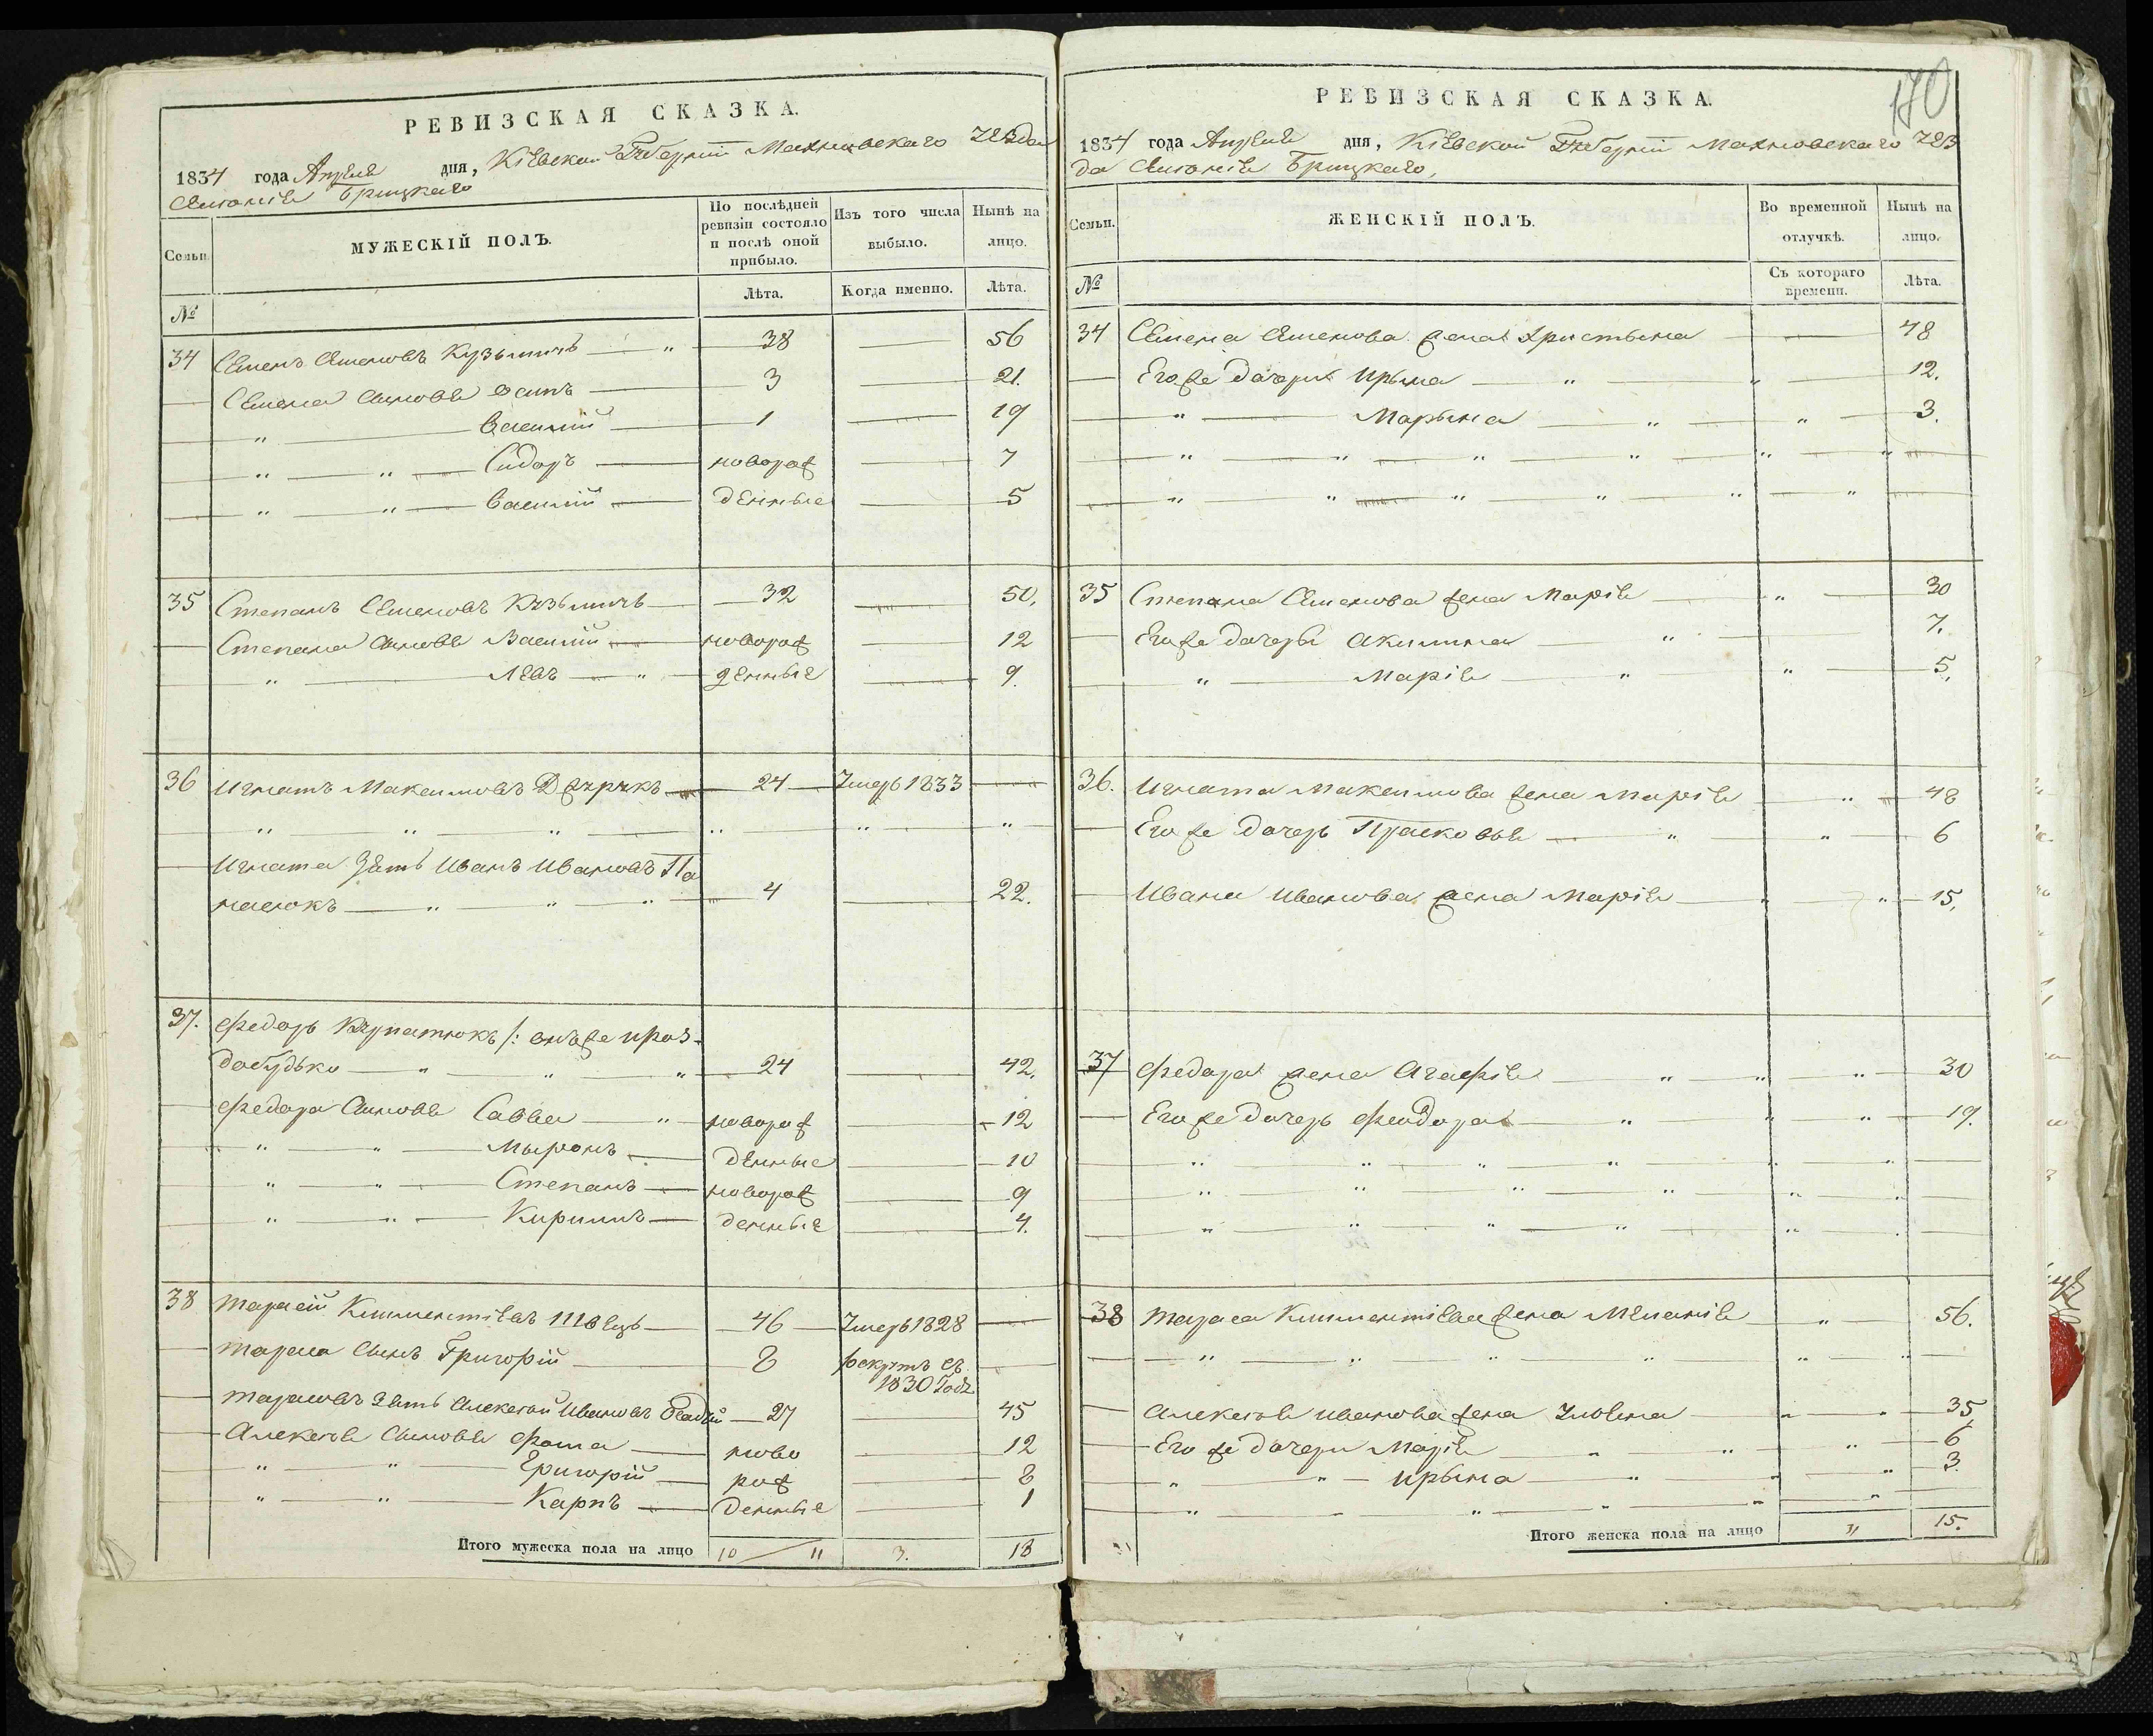 РЕВИЗСКАЯ СКАЗКА.
1834 года Апреля дня, Кіевской Губерніи Махновскаго Уѣзда
Антонія Брицкаго
Семьи.
МУЖЕСКІЙ ПОЛЪ.
По послѣдней ревизіи состояло и послѣ оной прибыло.
Изъ того числа выбыло.
Нынѣ на лицо.
№
Лѣта.
Когда именно.
Лѣта.
34 Семенъ Семеновъ Кузьмичъ — " — 38 — 56
— Семена Сыновья Осипъ — 3 — 21.
— " — Василій — 1 — 19
— " — " — Сидоръ — новорож — 7
— " — " — Василій — денные — 5
35 Степанъ Семеновъ Кузьмичъ — 32 — 50.
— Степана Сыновья Василій — новорож — 12
— " — Левъ — " — денные — 9.
36 Игнатъ Максимовъ — 24 — Умеръ 1833 —
— " — " — " — " — " — "
— Игната Зять Иванъ Ивановъ Па
насюкъ — " — " — " — 4 — 22.
37. Федоръ /: онъ же
— " — " — " — 24 — 42.
— Федора Сыновья Савва — " — новорож — 12
— " — " — Мыронъ — денные — 10
— " — " — Степанъ — новорож — 9
— " — " — Кирилъ — денные — 4.
38 Тарасій Климентіевъ Швецъ — 46 — Умеръ 1828 —
— Тараса Сынъ Григорій — 8 рекрутъ съ —
1830 Года
— Тарасовъ Зять Алексѣй Ивановъ — 27 — 45
— Алексѣя Сыновья Фома — ново — 12
— " — " — Григорій — рож — 8
— " — " — Карпъ — денные — 1
Итого мужеска пола на лицо 10 / 11 3. 18
170
РЕВИЗСКАЯ СКАЗКА.
1834 года Апреля дня, Кіевской Губерніи Махновскаго Уѣз
да Антонія Брицкаго,
Семьи.
ЖЕНСКІЙ ПОЛЪ.
Во временной отлучкѣ.
Нынѣ на лицо.
№
Съ котораго времени.
Лѣта.
34 Семена Семенова жена Христына — 48
— Его же дочери Ирына — " — " — 12.
— " — Марына — " — " — 3.
— " — " — " — " — " — " —
— " — " — " — " — " — " —
35 Степана Семенова жена Марія — " — 30
— Его же дочери Акилина — " — 7.
— " — Марія — " — " — 5.
36. Игната Максимова жена Марія — " — 48
— Его же дочерь Прасковья — " — " — 6
— Ивана Иванова жена Марія — " — " — 15.
37 Федора жена Агафія — " — " — " — 30
— Его же дочерь Феодора — " — " — " — 19.
— " — " — " — " — " — " —
— " — " — " — " — " — " —
— " — " — " — " — " — . —
38 Тараса Климентіева жена Меланія — " — 56.
— " — " — " — " — " — " —
— Алексѣя Иванова жена — " — " — 35
— Его же дочери Марія — " — " — " — 6
— " — " — Ирына — " — " — " — 3.
— " — " — " — " — " — " —
Итого женска пола на лицо " 15.